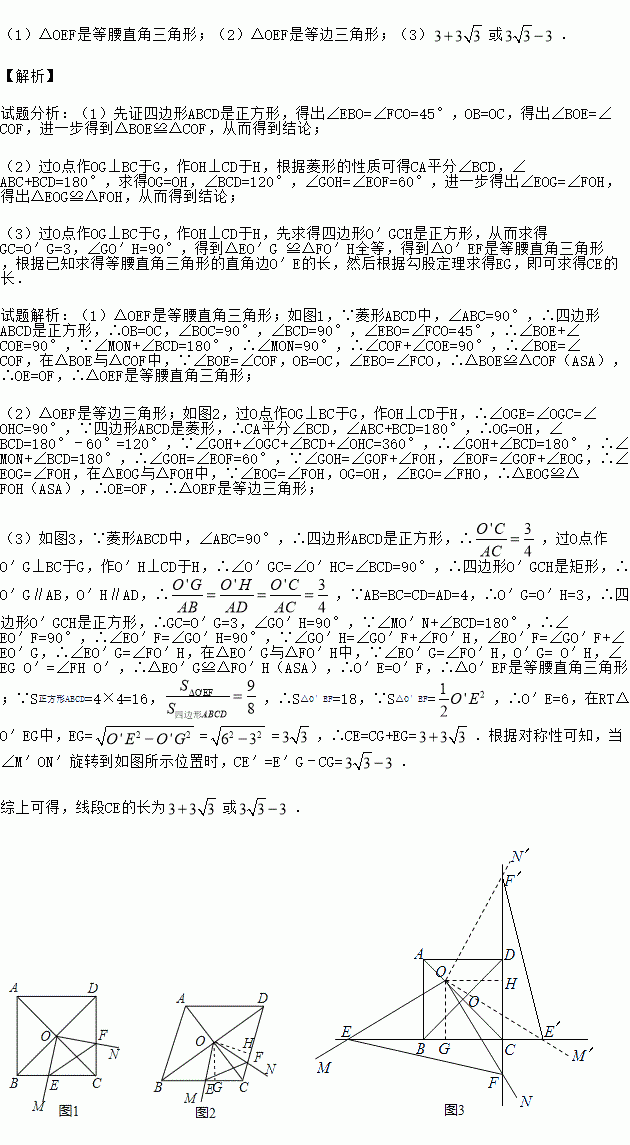 (1)△OEF是等腰直角三角形;(2)△OEF是等边三角形;(3)3+3√3 或3√3-3 .
【解析】
试题分析:(1)先证四边形ABCD是正方形,得出∠EBO=∠FCO=45°,OB=OC,得出∠BOE=∠
COF,进一步得到△BOE≌△COF,从而得到结论;
(2)过O点作OG⊥BC于G,作OH⊥CD于H,根据菱形的性质可得CA平分∠BCD,∠
ABC+BCD=180°,求得OG=OH,∠BCD=120°,∠GOH=∠EOF=60°,进一步得出∠EOG=∠FOH,
得出△EOG≌△FOH,从而得到结论;
(3)过O点作OG⊥BC于G,作OH⊥CD于H,先求得四边形O′GCH是正方形,从而求得
GC=O′G=3,∠GO′H=90°,得到△EO′G ≌△FO′H全等,得到△O′EF是等腰直角三角形
,根据已知求得等腰直角三角形的直角边O′E的长,然后根据勾股定理求得EG,即可求得CE的
长.
试题解析:(1)△OEF是等腰直角三角形;如图1,∵菱形ABCD中,∠ABC=90°,∴四边形
ABCD是正方形,∴OB=OC,∠BOC=90°,∠BCD=90°,∠EBO=∠FCO=45°,∴∠BOE+∠
COE=90°,∵∠MON+∠BCD=180°,∴∠MON=90°,∴∠COF+∠COE=90°,∴∠BOE=∠
COF,在△BOE与△COF中,∵∠BOE=∠COF,OB=OC,∠EBO=∠FCO,∴△BOE≌△COF(ASA),
∴OE=OF,∴△OEF是等腰直角三角形;
(2)△OEF是等边三角形;如图2,过O点作OG⊥BC于G,作OH⊥CD于H,∴∠OGE=∠OGC=∠
OHC=90°,∵四边形ABCD是菱形,∴CA平分∠BCD,∠ABC+BCD=180°,∴OG=OH,∠
BCD=180°-60°=120°,∵∠GOH+∠OGC+∠BCD+∠OHC=360°,∴∠GOH+∠BCD=180°,∴∠
MON+∠BCD=180°,∴∠GOH=∠EOF=60°,∵∠GOH=∠GOF+∠FOH,∠EOF=∠GOF+∠EOG,∴∠
EOG=∠FOH,在△EOG与△FOH中,∵∠EOG=∠FOH,OG=OH,∠EGO=∠FHO,∴△EOG≌△
FOH(ASA),∴OE=OF,∴△OEF是等边三角形;
(3)如图3,∵菱形ABCD中,∠ABC=90°,∴四边形ABCD是正方形,∴O'C/AC=3/4,过O点作
O′G⊥BC于G,作O′H⊥CD于H,∴∠O′GC=∠O′HC=∠BCD=90°,∴四边形O′GCH是矩形,∴
O′G∥AB,O′H∥AD,∴O'G/AB=O'H/AD=O'C/AC=3/4,∵AB=BC=CD=AD=4,∴O′G=O′H=3,∴四
边形O′GCH是正方形,∴GC=O′G=3,∠GO′H=90°,∵∠MO′N+∠BCD=180°,∴∠
EO′F=90°,∴∠EO′F=∠GO′H=90°,∵∠GO′H=∠GO′F+∠FO′H,∠EO′F=∠GO′F+∠
EO′G,∴∠EO′G=∠FO′H,在△EO′G与△FO′H中,∵∠EO′G=∠FO′H,O′G= O′H,∠
EG O′=∠FH O′,∴△EO′G≌△FO′H(ASA),∴O′E=O′F,∴△O′EF是等腰直角三角形
;∵S正方形ABCD=4×4=16,S△O'EF/S四边形ABCD=9/8,∴S△O′EF=18,∵S△O′EF=1/2O'E²,∴O′E=6,在RT△
O′EG中,EG=√(O'E²-O'G²)=√(6²-3²)=3√3,∴CE=CG+EG=3+3√3.根据对称性可知,当
∠M′ON′旋转到如图所示位置时,CE′=E′G-CG=3√3-3.
综上可得,线段CE的长为3+3√3 或3√3-3 .
A D O F N B E C M 图1
A D O H F N B E G C M 图2
N′ F′ A D O H O E B G C E′ M M′ F N 图3